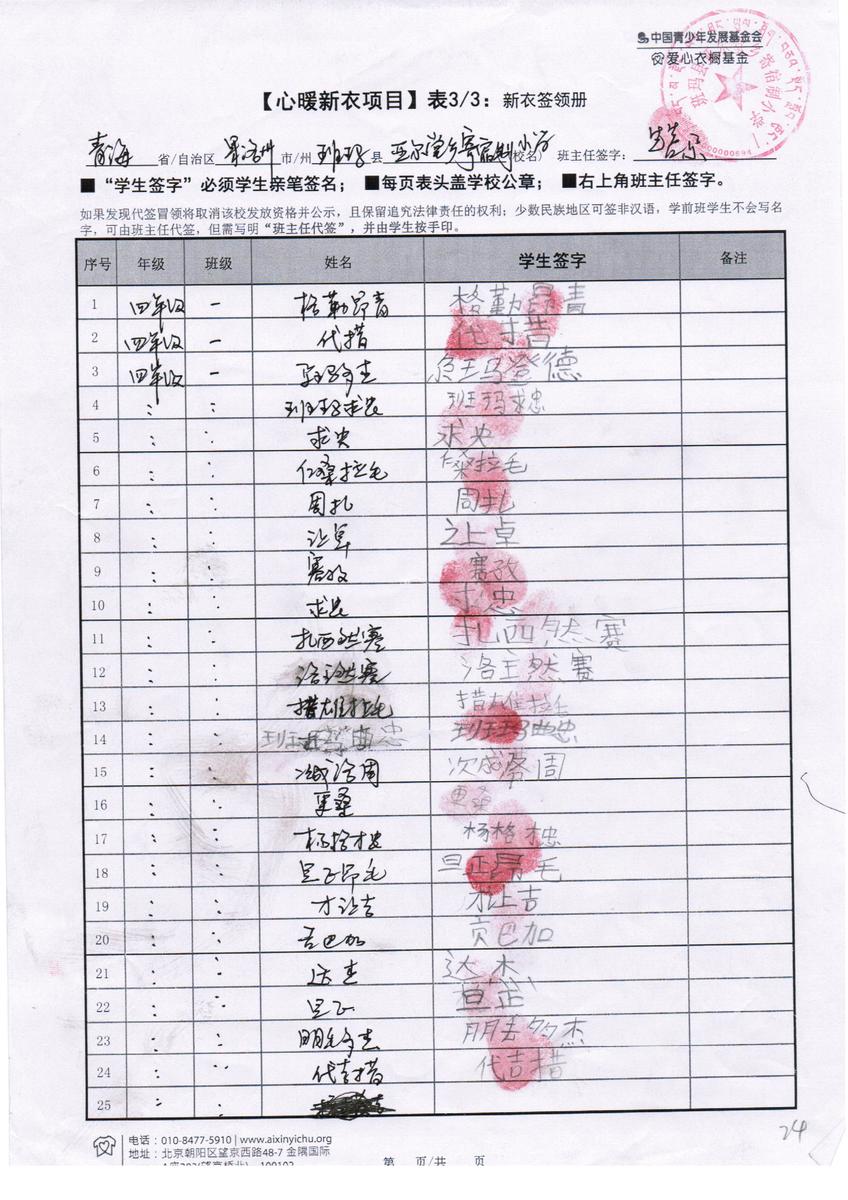 中国青少年发展基金会
爱心衣橱基金
【心暖新衣项目】表3/3：新衣签领册
青海 省/自治区 果洛州 市/州 班玛 县 亚尔堂乡寄宿制小学(校名) 班主任签字：
■“学生签字”必须学生亲笔签名；■每页表头盖学校公章；■右上角班主任签字。
如果发现代签冒领将取消该校发放资格并公示，且保留追究法律责任的权利；少数民族地区可签非汉语，学前班学生不会写名
字，可由班主任代签，但需写明“班主任代签”，并由学生按手印。
序号 年级 班级 姓名 学生签字 备注
1 四年级 一 格勒昂青 格勤昂青
2 四年级 一 代措 代措
3 四年级 一
4 班玛求忠 班玛求忠
5 求央 求央
6 仁桑拉毛 仁桑拉毛
7 周扎 周扎
8 让卓 之上卓
9 赛孜 赛孜
10 求忠 求忠
11 扎西然赛 扎西然赛
12 然赛 洛主然赛
13 措雄拉毛 措雄拉毛
14 班玛曲忠 班玛曲忠
15 次成洛周
16
17 杨格
18 旦正昂毛 旦正昂毛
19 才让吉 才上吉
20 贡巴加
21 达杰 达杰
22 旦正 旦芷
23 朋毛多杰
24 代吉措 代吉措
25
24
电话：010-8477-5910 | www.aixinyichu.org
地址：北京朝阳区望京西路48-7 金隅国际
第 页/共 页